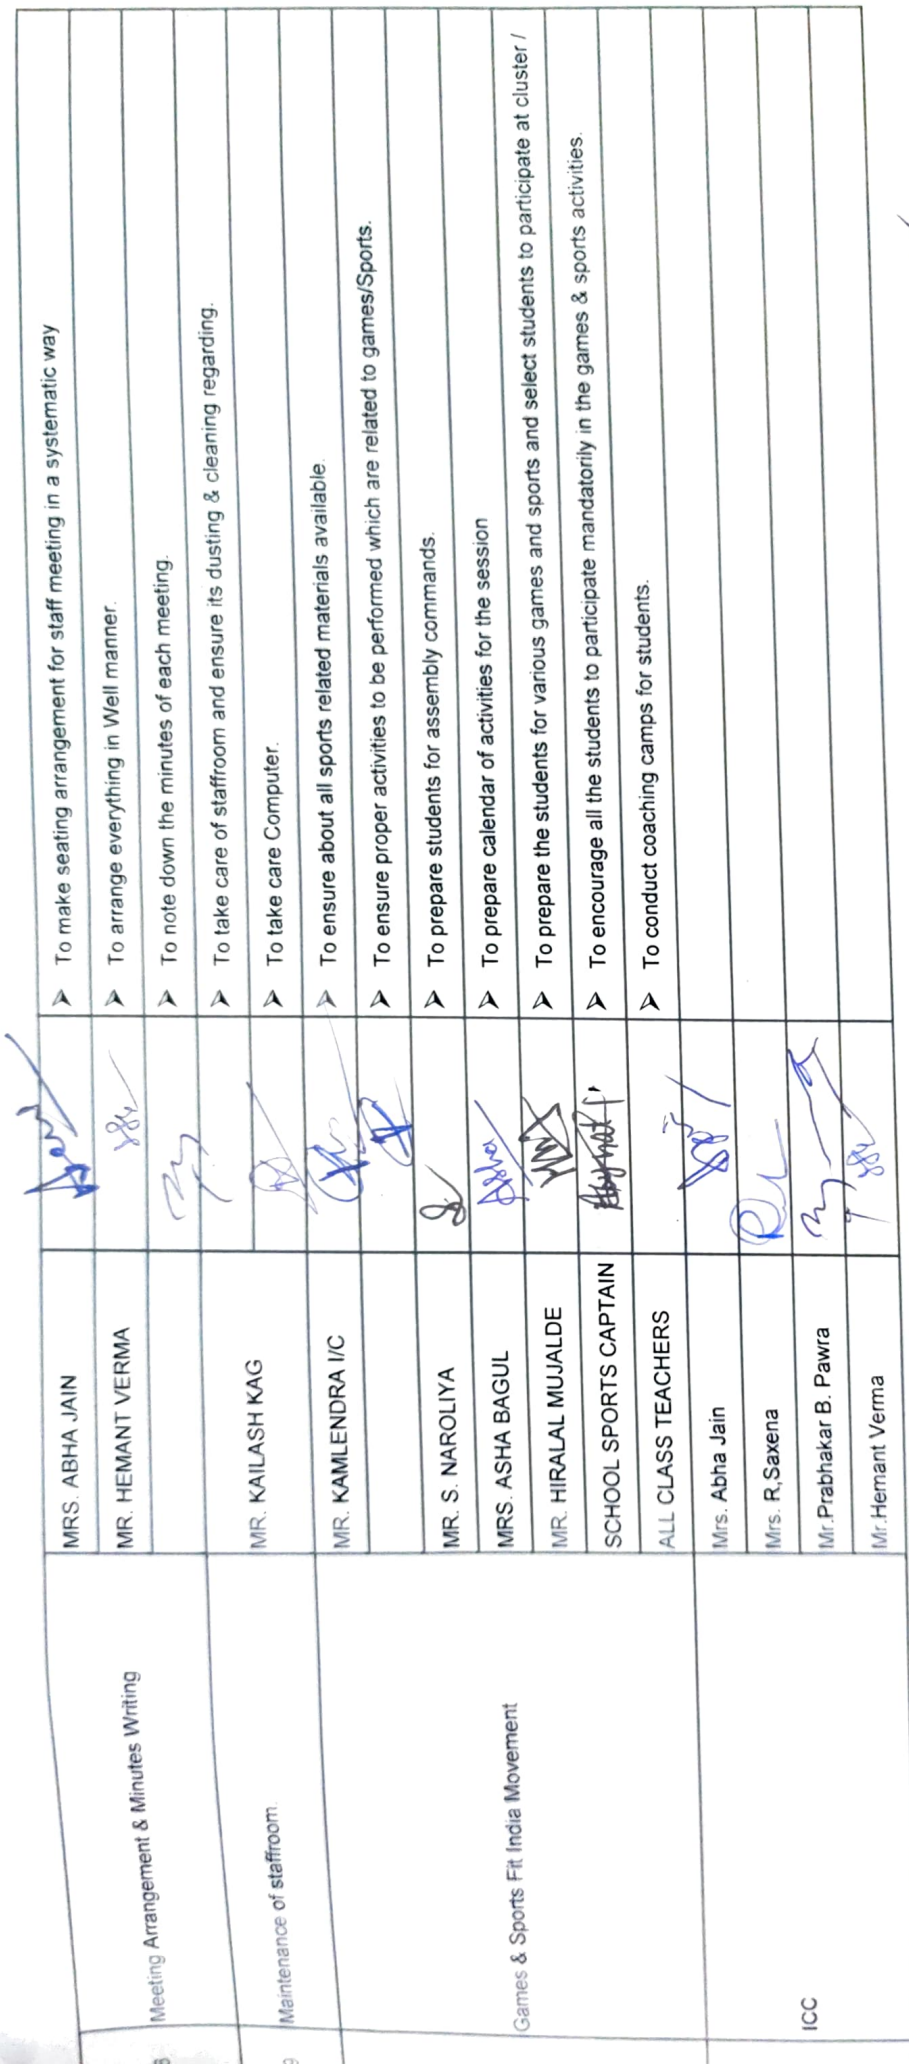 8 Meeting Arrangement & Minutes Writing
MRS. ABHA JAIN ➤ To make seating arrangement for staff meeting in a systematic way
MR. HEMANT VERMA ➤ To arrange everything in Well manner.
➤ To note down the minutes of each meeting.
9 Maintenance of staffroom.
➤ To take care of staffroom and ensure its dusting & cleaning regarding.
MR. KAILASH KAG ➤ To take care Computer.
Games & Sports Fit India Movement
MR. KAMLENDRA I/C ➤ To ensure about all sports related materials available.
➤ To ensure proper activities to be performed which are related to games/Sports.
MR. S. NAROLIYA ➤ To prepare students for assembly commands.
MRS. ASHA BAGUL Asha ➤ To prepare calendar of activities for the session
MR. HIRALAL MUJALDE ➤ To prepare the students for various games and sports and select students to participate at cluster /
SCHOOL SPORTS CAPTAIN ➤ To encourage all the students to participate mandatorily in the games & sports activities.
ALL CLASS TEACHERS ➤ To conduct coaching camps for students.
ICC
Mrs. Abha Jain
Mrs. R,Saxena
Mr.Prabhakar B. Pawra
Mr.Hemant Verma